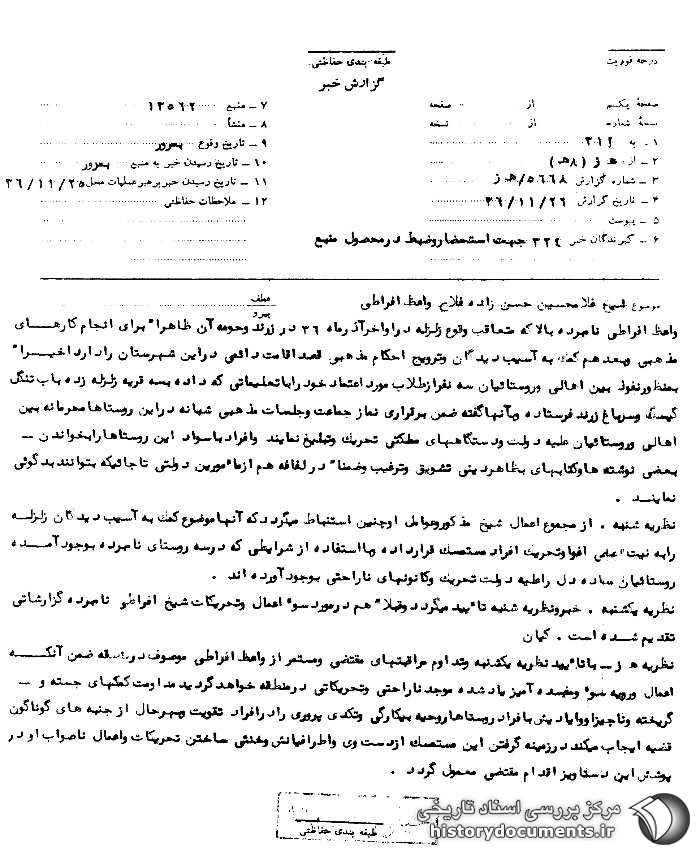 درجه فوریت
طبقه بندی حفاظتی
گزارش خبر
صفحهٔ یکم از صفحه
نسخهٔ شماره از نسخه
۱ - به ۳۱۲
۲ - از ه ز (۸ ه)
۳ - شماره گزارش ۵۶۶۸/ه ز
۴ - تاریخ گزارش ۳۶/۱۱/۲۶
۵ - پیوست
۶ - گیرندگان خبر ۳۲۲ جهت استحضار و ضبط در محصول منبع
۷ - منبع ۱۳۵۶۲
۸ - منشأ
۹ - تاریخ وقوع بمرور
۱۰ - تاریخ رسیدن خبر به منبع بمرور
۱۱ - تاریخ رسیدن خبر برهبر عملیات محل ۳۶/۱۱/۲۵
۱۲ - ملاحظات حفاظتی
موضوع شیخ غلامحسین حسن زاده فلاح واعظ افراطی
عطف
پیرو
واعظ افراطی نامبرده بالا که متعاقب وقوع زلزله در اواخر آذر ماه ۳۶ در زرند و حومه آن ظاهرا" برای انجام کارهای
مذهبی و بعد هم کمک به آسیب دیدگان و ترویج احکام مذهبی قصد اقامت دائمی در این شهرستان را دارد اخیرا"
بمنظور نفوذ بین اهالی و روستائیان سه نفر از طلاب مورد اعتماد خود را با تعلیماتی که داده بسه قریه زلزله زده باب تنگل
گیسک و سرباغ زرند فرستاده و بآنها گفته ضمن برقراری نماز جماعت و جلسات مذهبی شبانه در این روستاها محرمانه بین
اهالی و روستائیان علیه دولت و دستگاههای مملکتی تحریک و تبلیغ نمایند و افراد باسواد این روستاها را بخواندن -
بعضی نوشته ها و کتابهای بظاهر دینی تشویق و ترغیب و ضمنا" در لفافه هم از مأمورین دولتی تا جائیکه بتوانند بدگوئی
نمایند .
نظریه شنبه . از مجموع اعمال شیخ مذکور و عوامل او چنین استنباط میگردد که آنها موضوع کمک به آسیب دیدگان زلزله
را به نیت اغوا و تحریک افراد مستمسک قرار داده و با استفاده از شرایطی که در سه روستای نامبرده بوجود آمده
روستائیان ساده دل را علیه دولت تحریک و کانونهای ناراحتی بوجود آورده اند .
نظریه یکشنبه . خبر و نظریه شنبه تأیید میگردد و قبلا" هم در مورد سوء اعمال و تحریکات شیخ افراطی نامبرده گزارشاتی
تقدیم شده است . کیان
نظریه ه ز - با تأیید نظریه یکشنبه و تداوم مراقبتهای مقتضی و مستمر از واعظ افراطی موصوف در منطقه ضمن آنکه
اعمال و رویه سوء و مفسده آمیز یاد شده موجد ناراحتی و تحریکاتی در منطقه خواهد گردید مداومت کمکهای جسته و -
گریخته و ناچیز او و ایادیش بافراد روستاها روحیه بیکارگی و تکدی پروری را در افراد تقویت و بهر حال از جنبه های گوناگون
قضیه ایجاب میکند در زمینه گرفتن این مستمسک از دست وی و اطرافیانش و خنثی ساختن تحریکات و اعمال ناصواب او در
پوشش این دستاویز اقدام مقتضی معمول گردد .
طبقه بندی حفاظتی
مرکز بررسی اسناد تاریخی
historydocuments.ir